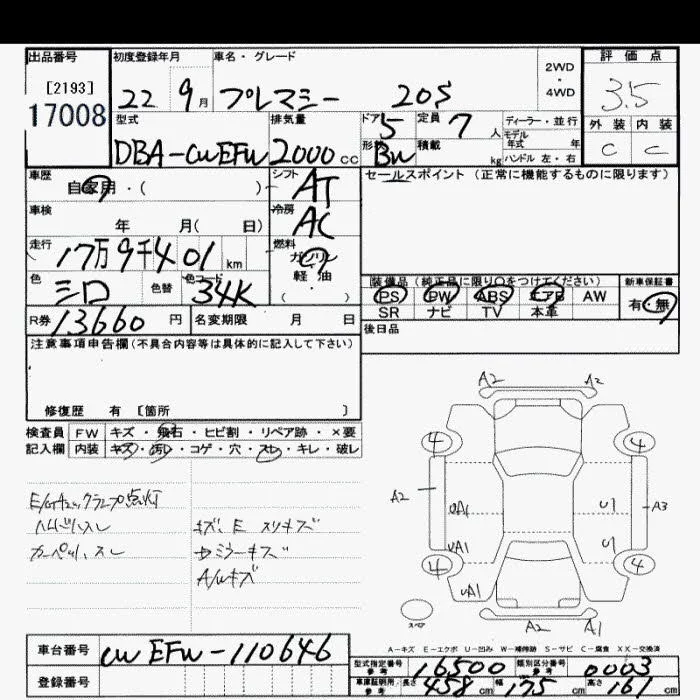 出品番号 初度登録年月 車名・グレード 2WD・4WD 評価点
[2193]
17008
22 9月 プレマシー 20S 3.5
型式 排気量 ドア 定員 ディーラー・並行 外装 内装
DBA-CWEFW 2000cc 5 7人 モデル年式 年 C C
形状 BW 積載 kg ハンドル 左・右
車歴 シフト セールスポイント (正常に機能するものに限ります)
自家用・( ) AT
車検 冷房
年 月( 日) AC
走行 燃料
17万9千401km ガソリン
軽・油
( )
色 色替 色コード 装備品 (純正品に限り○をつけてください) 新車保証書
シロ 34K PS PW ABS エアB AW 有・無
SR ナビ TV 本革
R券 13660円 名変期限 月 日 後日品
注意事項申告欄(不具合内容等は具体的に記入して下さい)
修復歴 有 [箇所 ]
検査員 FW キズ・飛石・ヒビ割・リペア跡・×要
記入欄 内装 キズ・汚レ・コゲ・穴・スレ・キレ・破レ
E/gチェックランプ点灯
ハンドルスレ
カーペットスレ
キズ、E スリキズ
ミラーキズ
A/Wキズ
A2 A2
4 4
A2 A3
UA1 U1
UA1 U1
4 4
UA1
A2 A1
スペア
A-キズ E-エクボ U-凹み W-補修跡 S-サビ C-腐食 XX-交換済
車台番号 CWEFW-110646
登録番号
型式指定番号 参考 16500 類別区分番号 参考 0003
車庫証明用 参考 長さ 458cm 幅 175cm 高さ 161cm